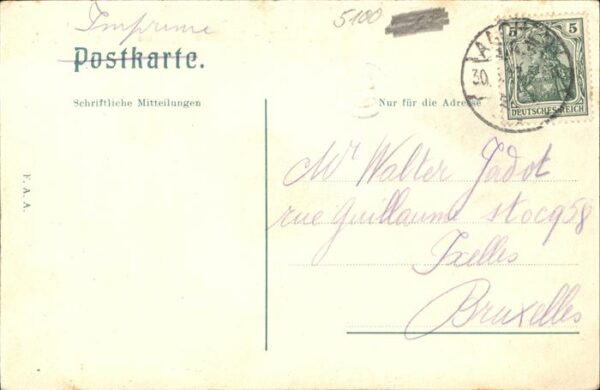 Imprimé
5100
Postkarte.
Schriftliche Mitteilungen
Nur für die Adresse
5 5
DEUTSCHES REICH
30.
F. A. A.
Mr Walter Jadot
rue Guillaume Stocq 58
Ixelles
Bruxelles